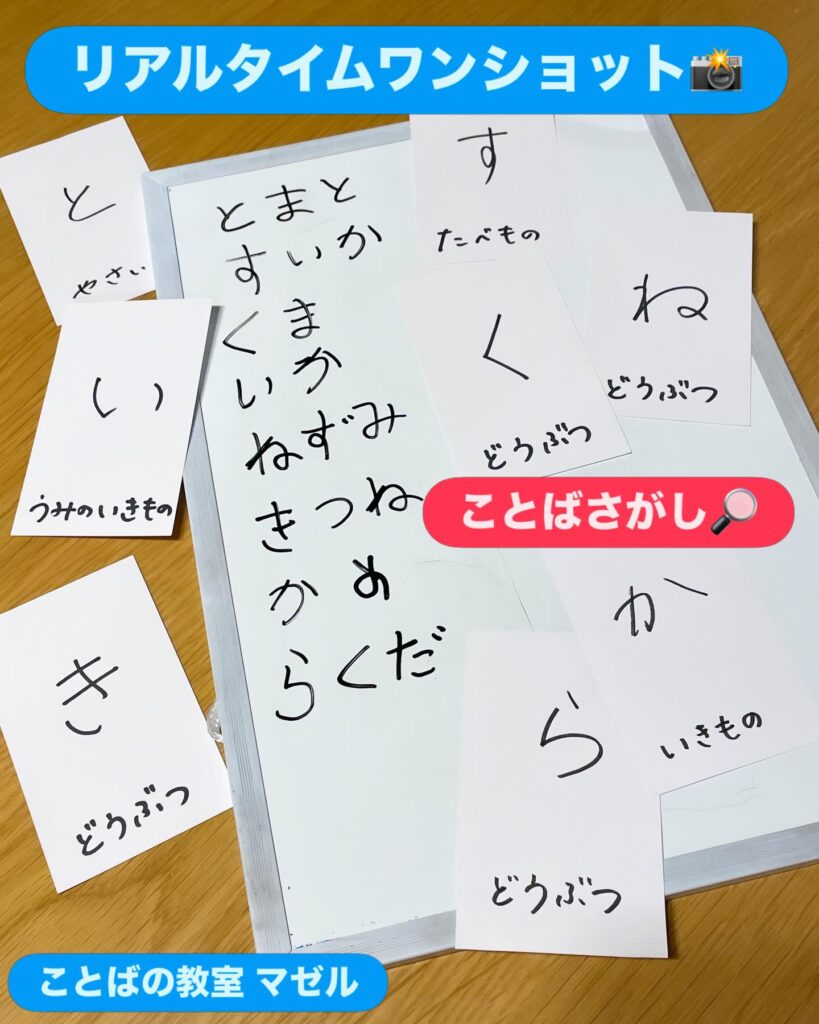 リアルタイムワンショット📸
と
やさい
す
たべもの
とまと
すいか
くま
いか
ねずみ
きつね
かめ
らくだ
ね
どうぶつ
く
どうぶつ
い
うみのいきもの
ことばさがし🔎
か
いきもの
き
どうぶつ
ら
どうぶつ
ことばの教室 マゼル